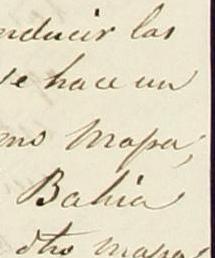 nducir las
se hace un
mo Mapa,
Bahia
otro mapa